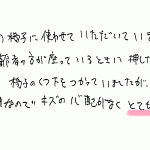 の椅子に使わせていただいていま
齢者の方が座っているときに押した
椅子のくつ下をつかっていましたが、
なのでキズの心配がなく とても